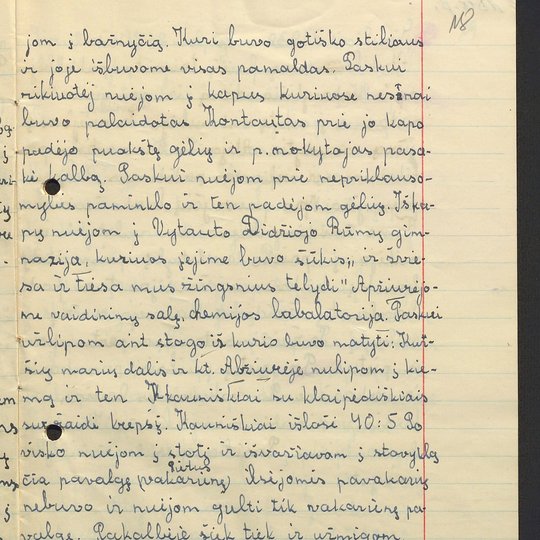 18
jom į bažnyčią. Kuri buvo gotiško stiliaus
ir joje išbuvome visas pamaldas. Paskui
rikiuotėj nuėjom į kapus kuriuose nesenai
buvo palaidotas Kontautas prie jo kapo
padėjo puokštę gėlių ir p. mokytojas pasa-
kė kalbą. Paskui nuėjom prie nepriklauso-
mybės paminklo ir ten padėjom gėlių. Iš ka-
pų nuėjom į Vytauto Didžiojo Rūmų gim-
nazija, kuriuos įėjime buvo šūkis „ ir švie-
sa ir tiesa mus žingsnius telydi" Apžiurėjo-
me vaidinimų salę, chemijos labalatorija. Paskui
užlipom ant stogo iš kurio buvo matyti: Kur-
šių marių dalis ir kt. Abžiurėję nulipom į kie-
mą ir ten Kkauniškiai su klaipėdiškiais
sužaidė krepšį. Kauniškiai išlošė 40:5 Po
visko nuėjom į stotį ir išvažiavam į stovyklą
čia pavalgę vakarienę pietus ilsėjomės pavakarių
nebuvo ir nuėjom gulti tik vakarienę pa-
valgę. Pakalbėję šiek tiek ir užmigom